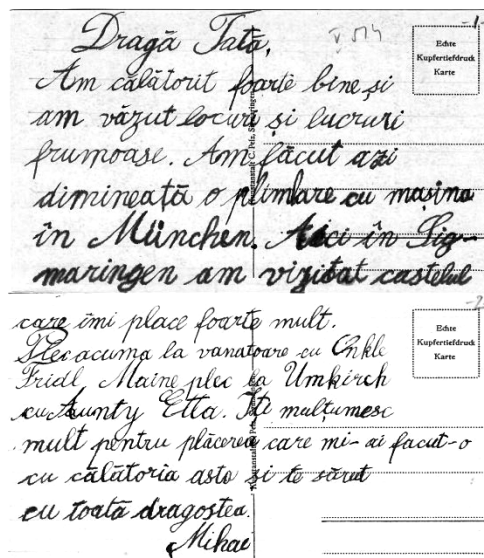 -1-
Dragă Tată,
V 514
Echte
Kupfertiefdruck
Karte
Am călătorit foarte bine și
am văzut locuri și lucruri
frumoase. Am făcut azi
dimineață o plimbare cu mașina
în München. Aici în Sig-
maringen am vizitat castelul
-2
care îmi place foarte mult.
Echte
Kupfertiefdruck
Karte
Plec acuma la vanatoare cu Onkle
Fridl. Maine plec la Umkirch
cu Aunty Etta. Iți mulțumesc
mult pentru plăcerea care mi-ai facut-o
cu călătoria asta și te sărut
cu toată dragostea.
Mihai